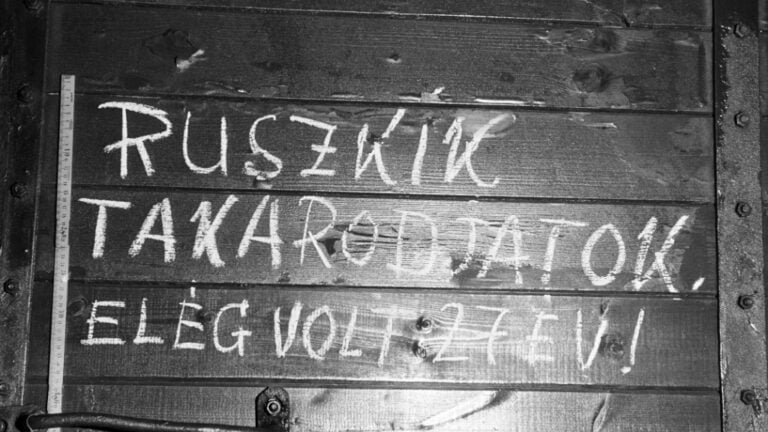 RUSZKIK
TAKARODJATOK.
ELÉG VOLT 27 ÉV!